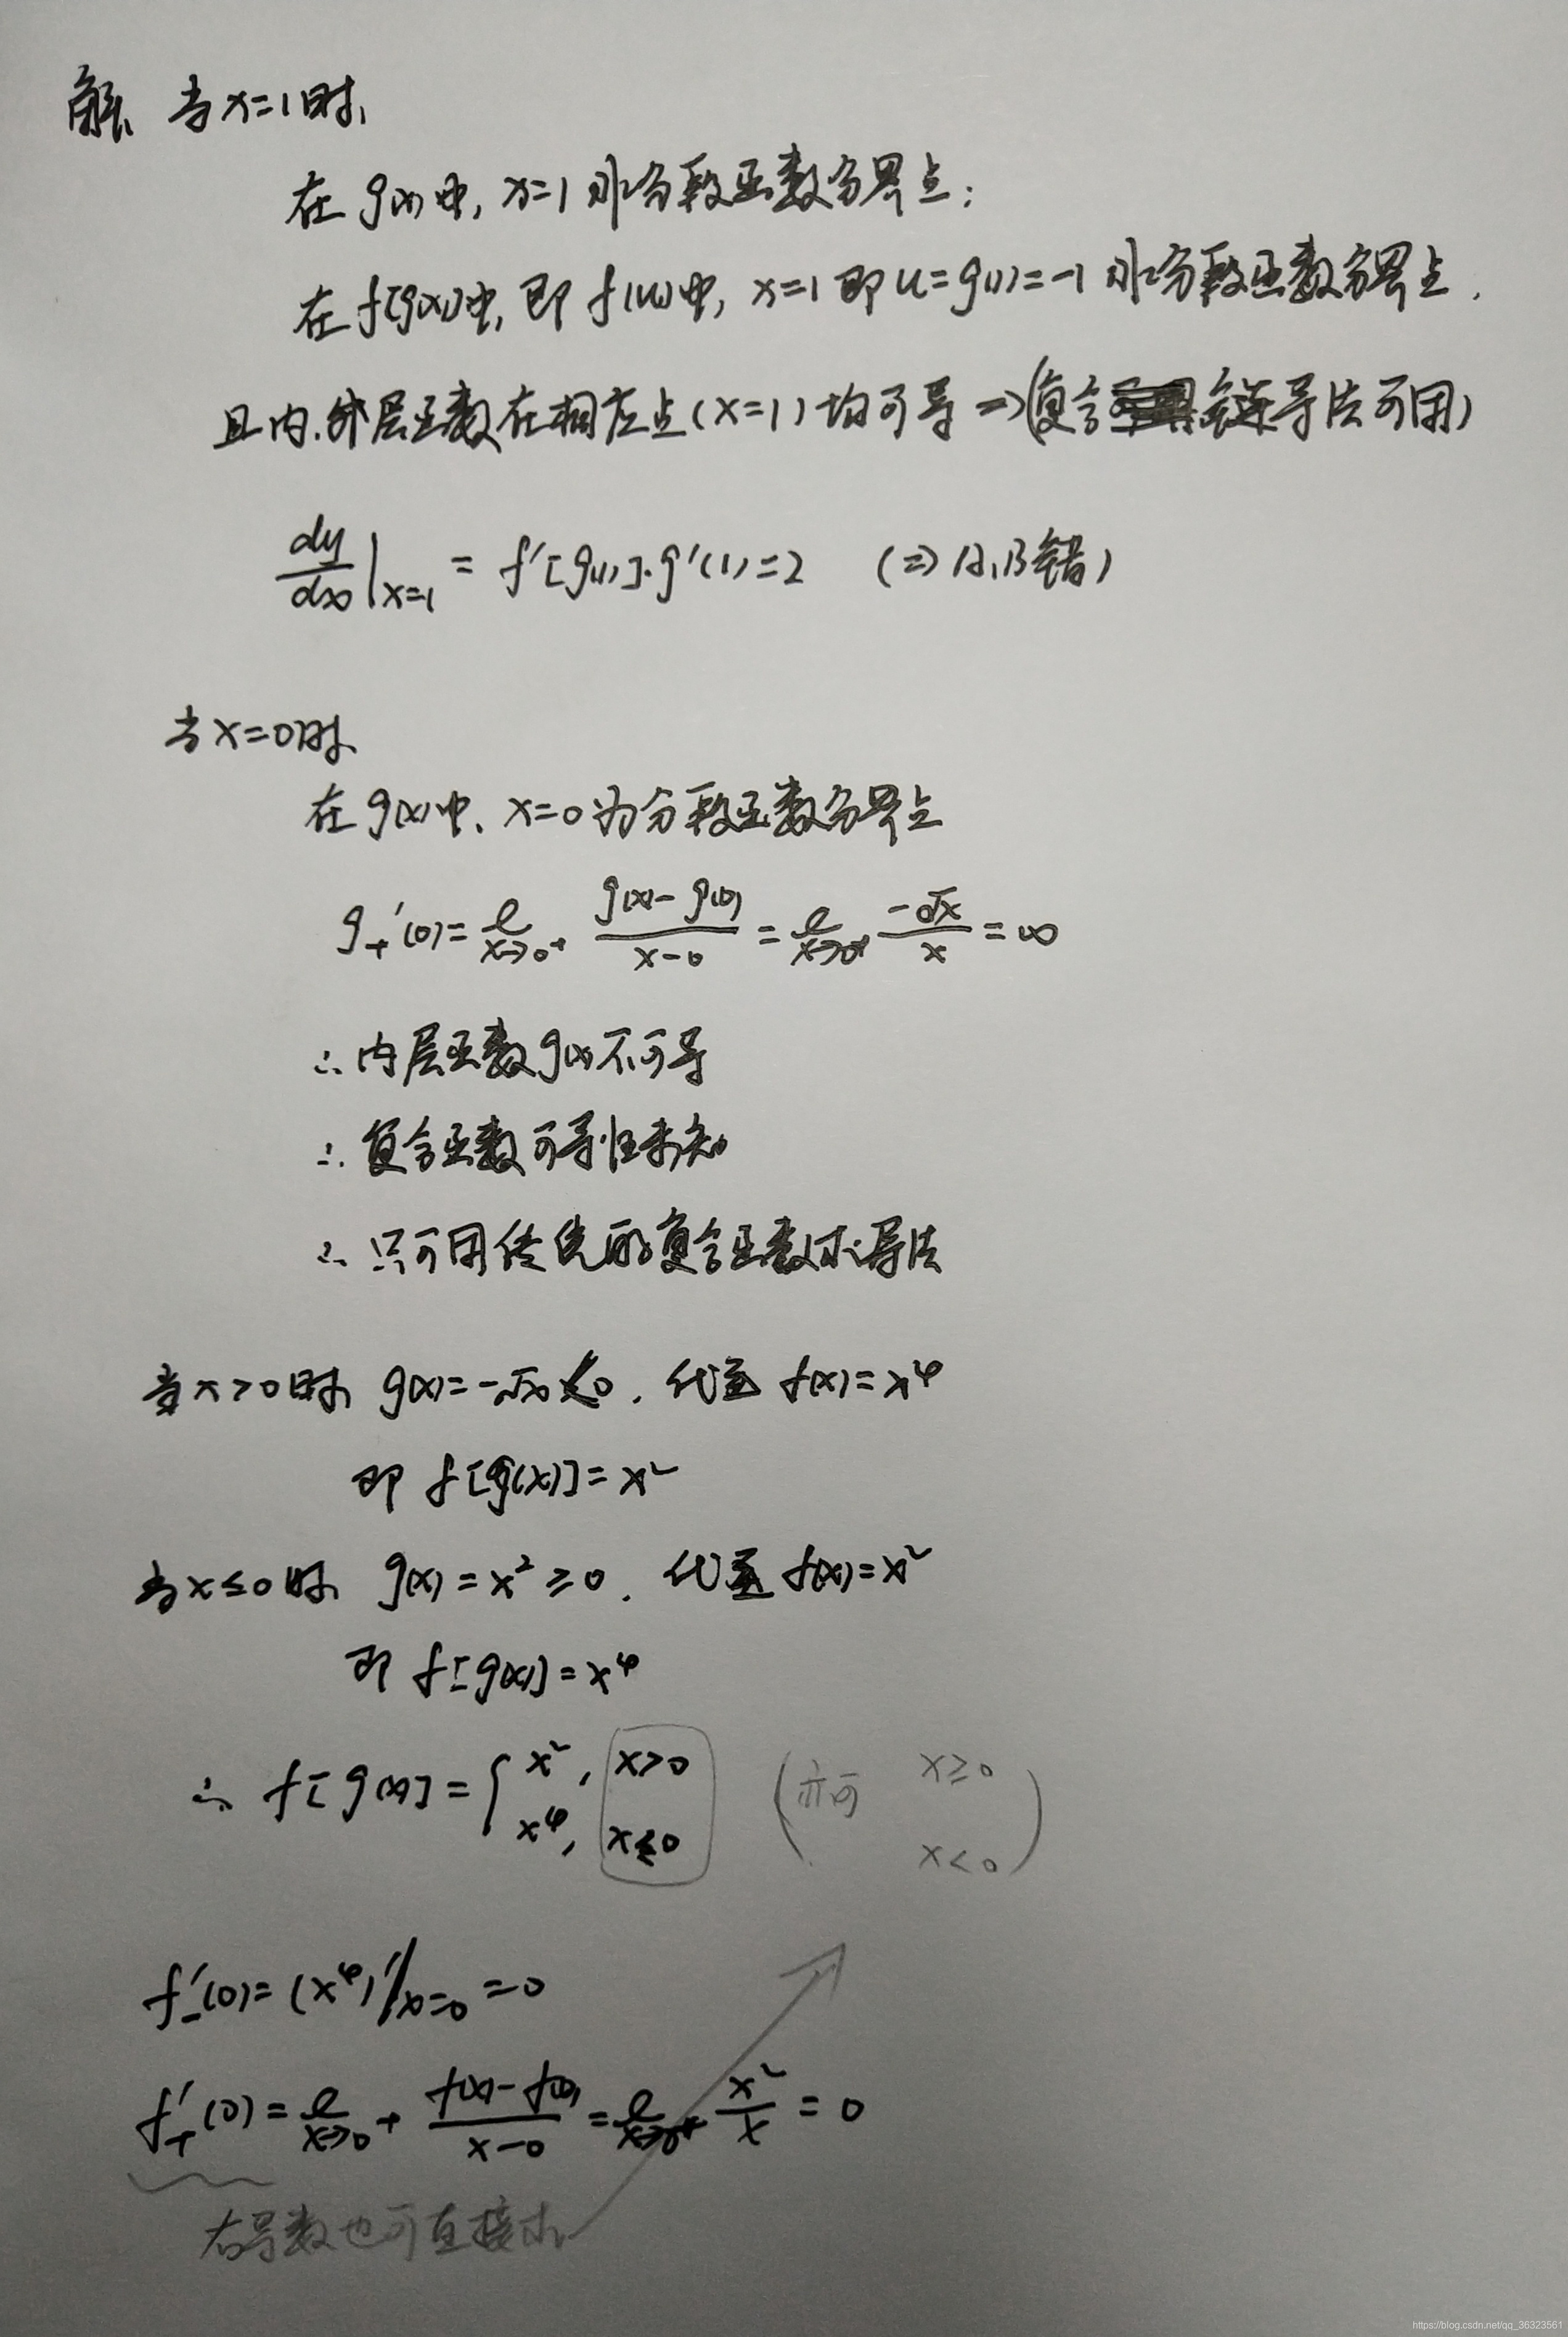 解、当x=1时,
在g(x)中, x=1非分段函数分界点;
在f[g(x)]中, 即f(u)中, x=1即u=g(1)=-1非分段函数分界点.
且内.外层函数在相应点(x=1)均可导 => (复合链导法可用)
dy/dx|x=1 = f'[g(1)]·g'(1)=2 (=> A,B错)
当x=0时
在g(x)中、x=0为分段函数分界点
g₊'(0)= l x→0⁺ (g(x)-g(0))/(x-0) = l x→0⁺ (-√x)/x = ∞
∴内层函数g(x)不可导
∴复合函数可导性未知
∴只可用传统的复合函数求导法
当x>0时 g(x)=-√x<0. 代至 f(x)=x⁴
即 f[g(x)]=x²
当x≤0时 g(x)=x²≥0. 代至 f(x)=x²
即 f[g(x)]=x⁴
∴ f[g(x)]={ x², x>0 (亦可 x≥0
x⁴, x≤0 x<0)
f₋'(0)=(x⁴)'|x=0=0
f₊'(0)= l x→0⁺ (f(x)-f(0))/(x-0) = l x→0⁺ x²/x = 0
右导数也可直接求
https://blog.csdn.net/qq_36323561